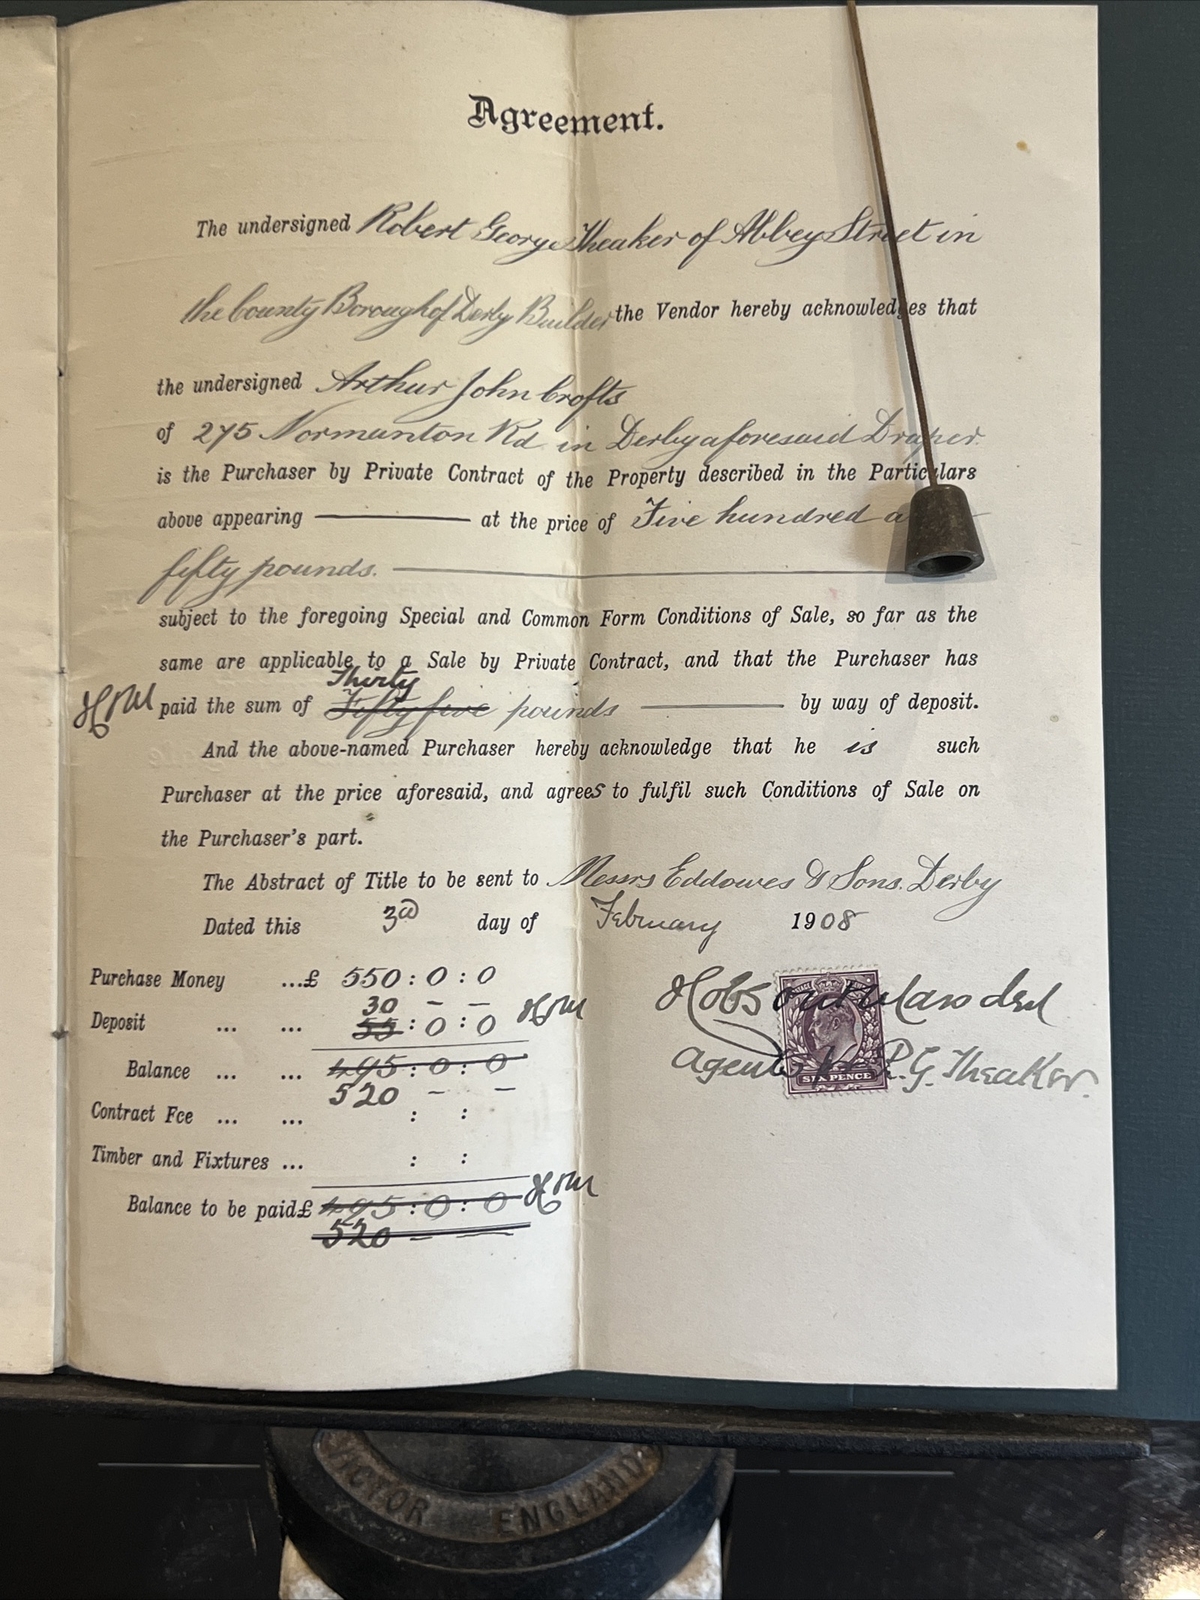 Agreement.
The undersigned Robert George Theaker of Abbey Street in
the County Borough of Derby Builder the Vendor hereby acknowledges that
the undersigned Arthur John Crofts
of 275 Normanton Rd in Derby aforesaid Draper.
is the Purchaser by Private Contract of the Property described in the Particulars
above appearing at the price of Five hundred a
fifty pounds.
subject to the foregoing Special and Common Form Conditions of Sale, so far as the
same are applicable to a Sale by Private Contract, and that the Purchaser has
Thirty
HM paid the sum of Fifty five pounds by way of deposit.
And the above-named Purchaser hereby acknowledge that he is such
Purchaser at the price aforesaid, and agrees to fulfil such Conditions of Sale on
the Purchaser's part.
The Abstract of Title to be sent to Messrs Eddowes & Sons. Derby
Dated this 3rd day of February 1908
Purchase Money ...£ 550 : 0 : 0
30 – –
Deposit ... ... 55 : 0 : 0
Balance ... ... 495 : 0 : 0
520 – –
Contract Fee ... ... : :
Timber and Fixtures ... : :
Balance to be paid £ 495 : 0 : 0
520 – –
Agents for R.G. Theaker.
SIX PENCE
VICTOR ENGLAND